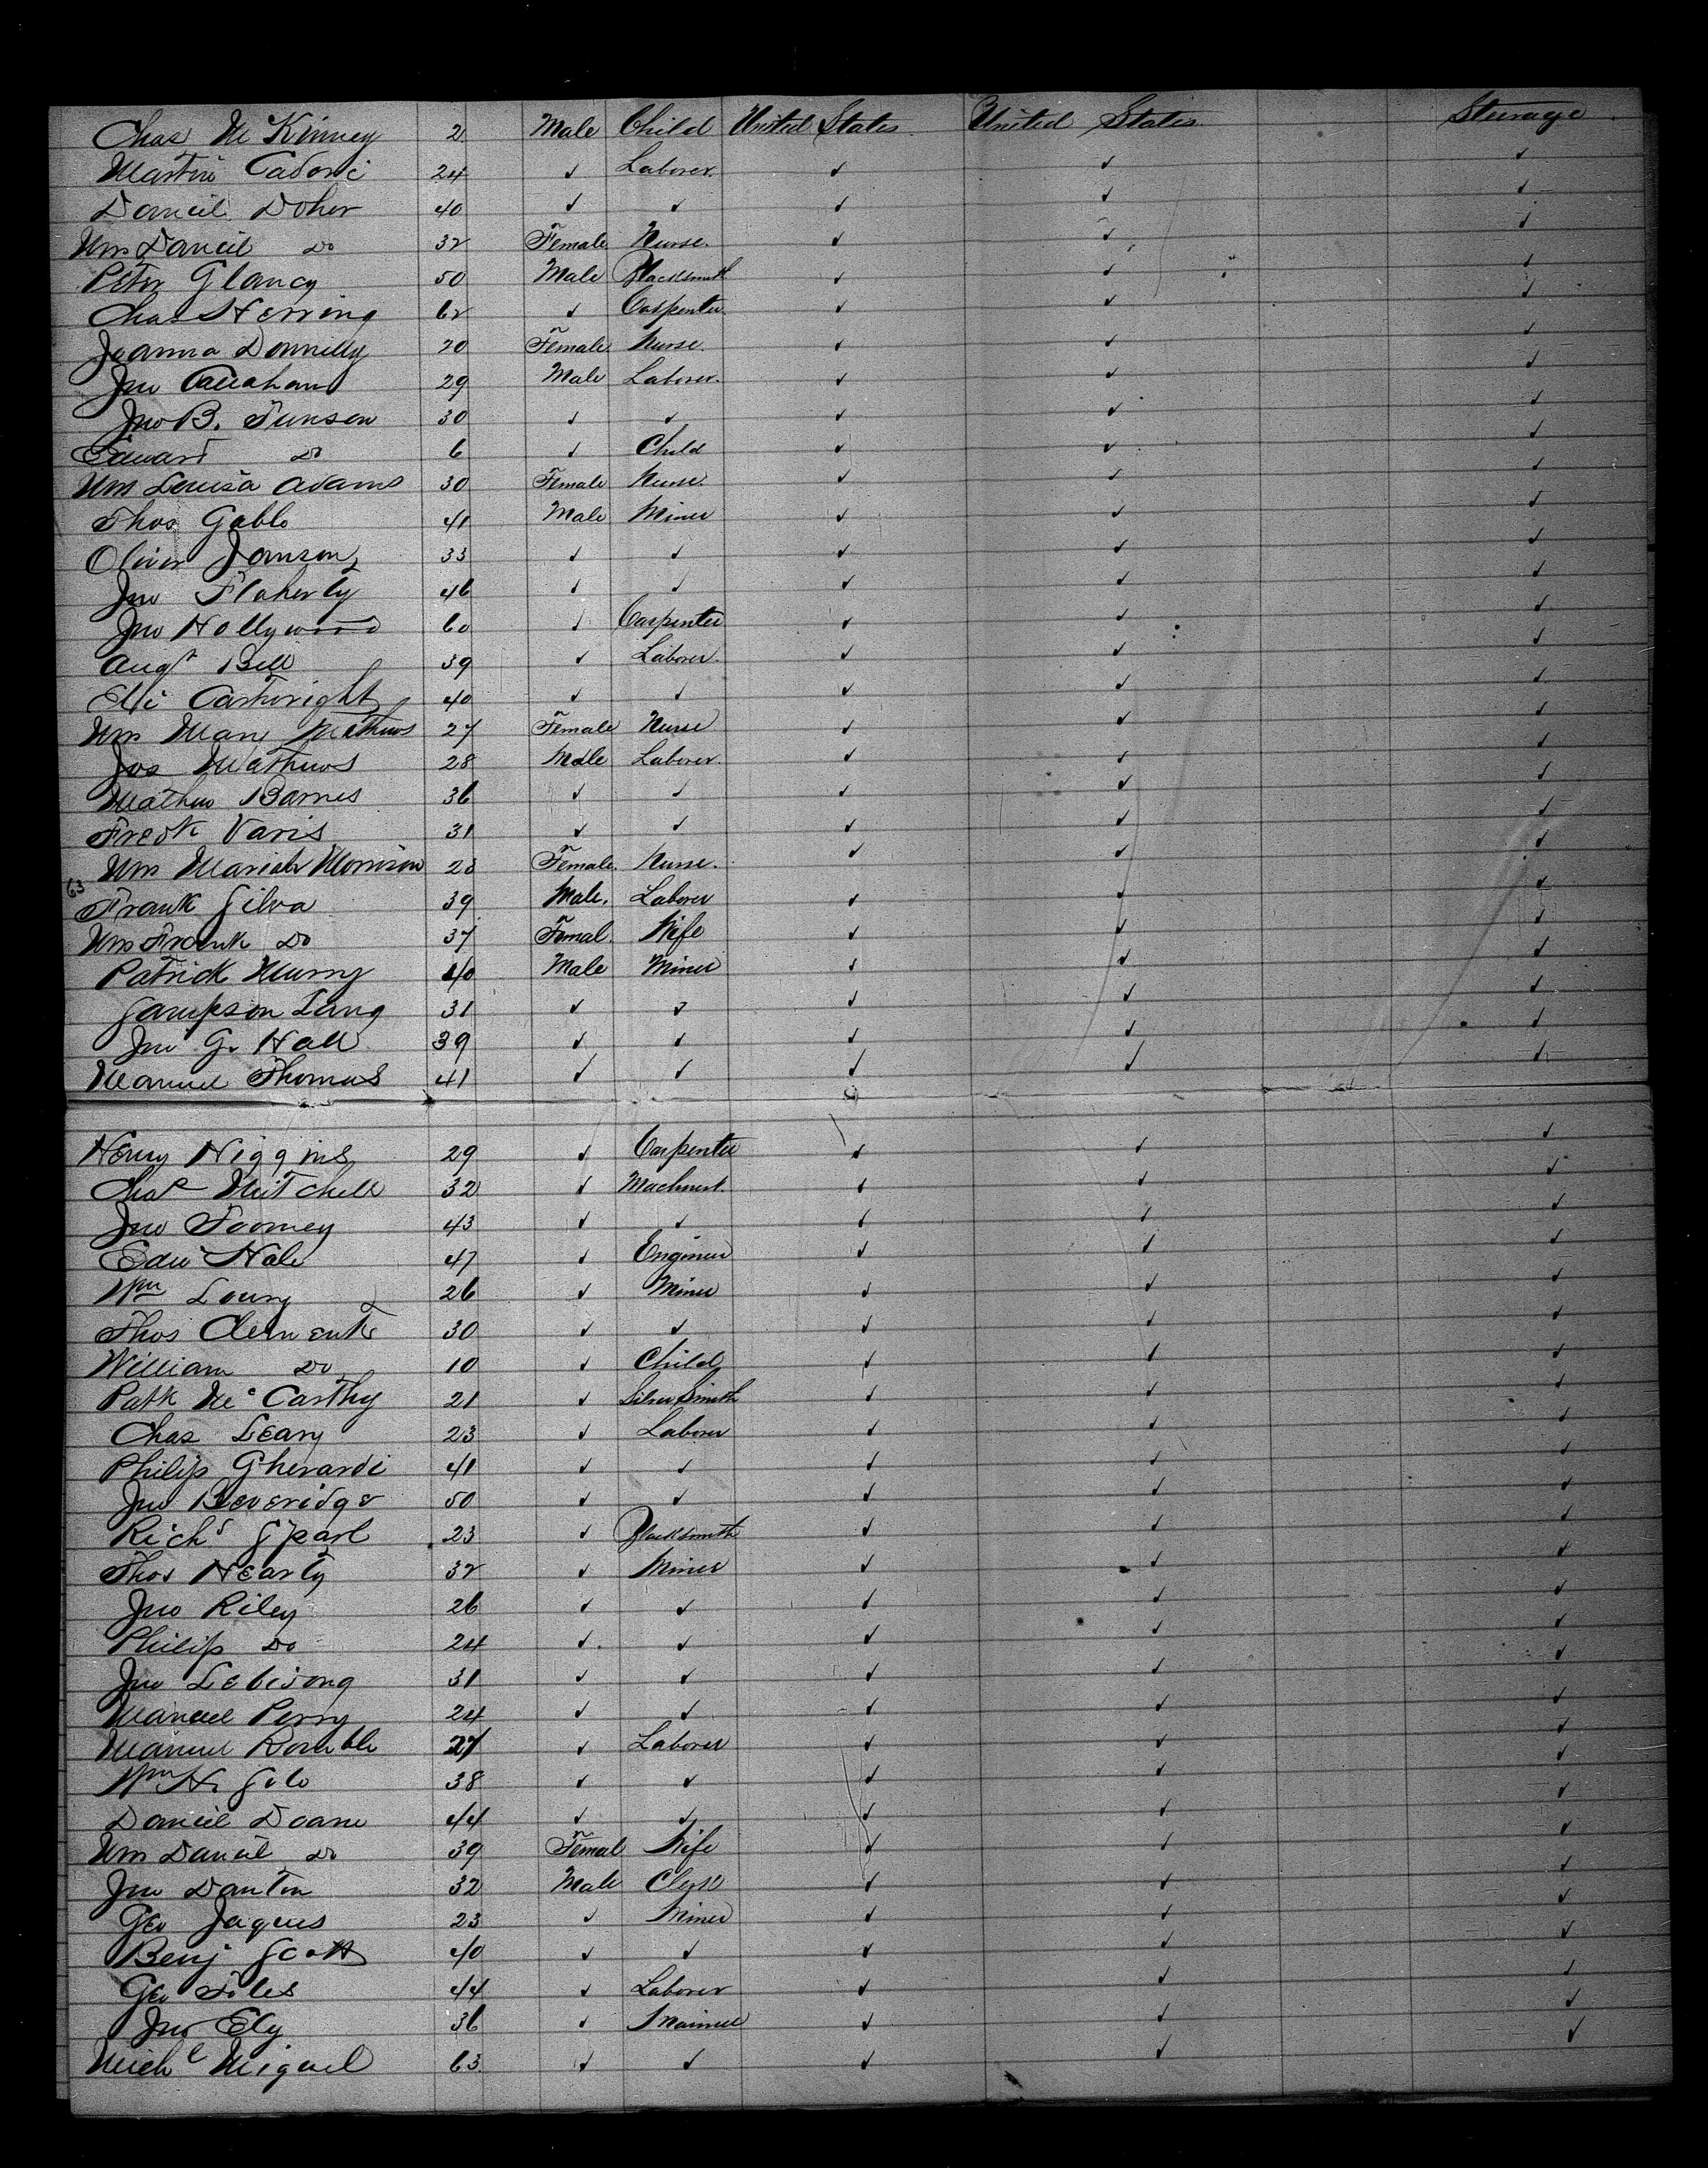 Chas McKinney 2 Male Child United States United States Steerage
Martin Cadoric 24 ✓ Laborer ✓ ✓ ✓
Daniel Doher 40 ✓ ✓ ✓ ✓ ✓
Mrs Daniel Do 32 Female Nurse ✓ ✓ ✓
Peter Glancy 50 Male Blacksmith ✓ ✓ ✓
Chas Herring 62 ✓ Carpenter ✓ ✓ ✓
Joanna Donnelly 20 Female Nurse ✓ ✓ ✓
Jno Callahan 29 Male Laborer ✓ ✓ ✓
Jno B. Funson 30 ✓ ✓ ✓ ✓ ✓
Edward Do 6 ✓ Child ✓ ✓ ✓
Mrs Louisa Adams 30 Female Nurse ✓ ✓ ✓
Thos Gablo 41 Male Miner ✓ ✓ ✓
Oliver Jamson 33 ✓ ✓ ✓ ✓ ✓
Jno Flaherty 46 ✓ ✓ ✓ ✓ ✓
Jno Hollywood 60 ✓ Carpenter ✓ ✓ ✓
Augt Bell 39 ✓ Laborer ✓ ✓ ✓
Eli Cartwright 40 ✓ ✓ ✓ ✓ ✓
Mrs Mary Mathews 27 Female Nurse ✓ ✓ ✓
Jos Mathews 28 Male Laborer ✓ ✓ ✓
Mathew Barnes 36 ✓ ✓ ✓ ✓ ✓
Fredk Varis 31 ✓ ✓ ✓ ✓ ✓
Mrs Mariah Morrison 28 Female Nurse ✓ ✓ ✓
63 Frank Silva 39 Male Laborer ✓ ✓ ✓
Mrs Frank Do 37 Femal Wife ✓ ✓ ✓
Patrick Murry 40 Male Miner ✓ ✓ ✓
Sampson Lang 31 ✓ ✓ ✓ ✓ ✓
Jno G. Hall 39 ✓ ✓ ✓ ✓ ✓
Manuel Thomas 41 ✓ ✓ ✓ ✓ ✓
Henry Higgins 29 ✓ Carpenter ✓ ✓ ✓
Chas Mitchell 32 ✓ Machinest ✓ ✓ ✓
Jno Toomey 43 ✓ ✓ ✓ ✓ ✓
Edw Hale 47 ✓ Engineer ✓ ✓ ✓
Wm Loury 26 ✓ Miner ✓ ✓ ✓
Thos Clements 30 ✓ ✓ ✓ ✓ ✓
William Do 10 ✓ Child ✓ ✓ ✓
Patk McCarthy 21 ✓ Silver Smith ✓ ✓ ✓
Chas Leary 23 ✓ Laborer ✓ ✓ ✓
Philip Gherardi 41 ✓ ✓ ✓ ✓ ✓
Jno Beveridge 50 ✓ ✓ ✓ ✓ ✓
Richd Sparl 23 ✓ Blacksmith ✓ ✓ ✓
Thos Hearty 32 ✓ Miner ✓ ✓ ✓
Jno Riley 26 ✓ ✓ ✓ ✓ ✓
Philip Do 24 ✓ ✓ ✓ ✓ ✓
Jno 31 ✓ ✓ ✓ ✓ ✓
Manuel Perry 24 ✓ ✓ ✓ ✓ ✓
Manuel 27 ✓ Laborer ✓ ✓ ✓
Wm H. 38 ✓ ✓ ✓ ✓ ✓
Daniel Doane 44 ✓ ✓ ✓ ✓ ✓
Mrs Daniel Do 39 Femal Wife ✓ ✓ ✓
Jno Danton 32 Male Clerk ✓ ✓ ✓
Geo Jaques 23 ✓ Miner ✓ ✓ ✓
Benj Scott 40 ✓ ✓ ✓ ✓ ✓
Geo Files 44 ✓ Laborer ✓ ✓ ✓
Jno Ely 36 ✓ ✓ ✓ ✓
Michl Miguel 63 ✓ ✓ ✓ ✓ ✓